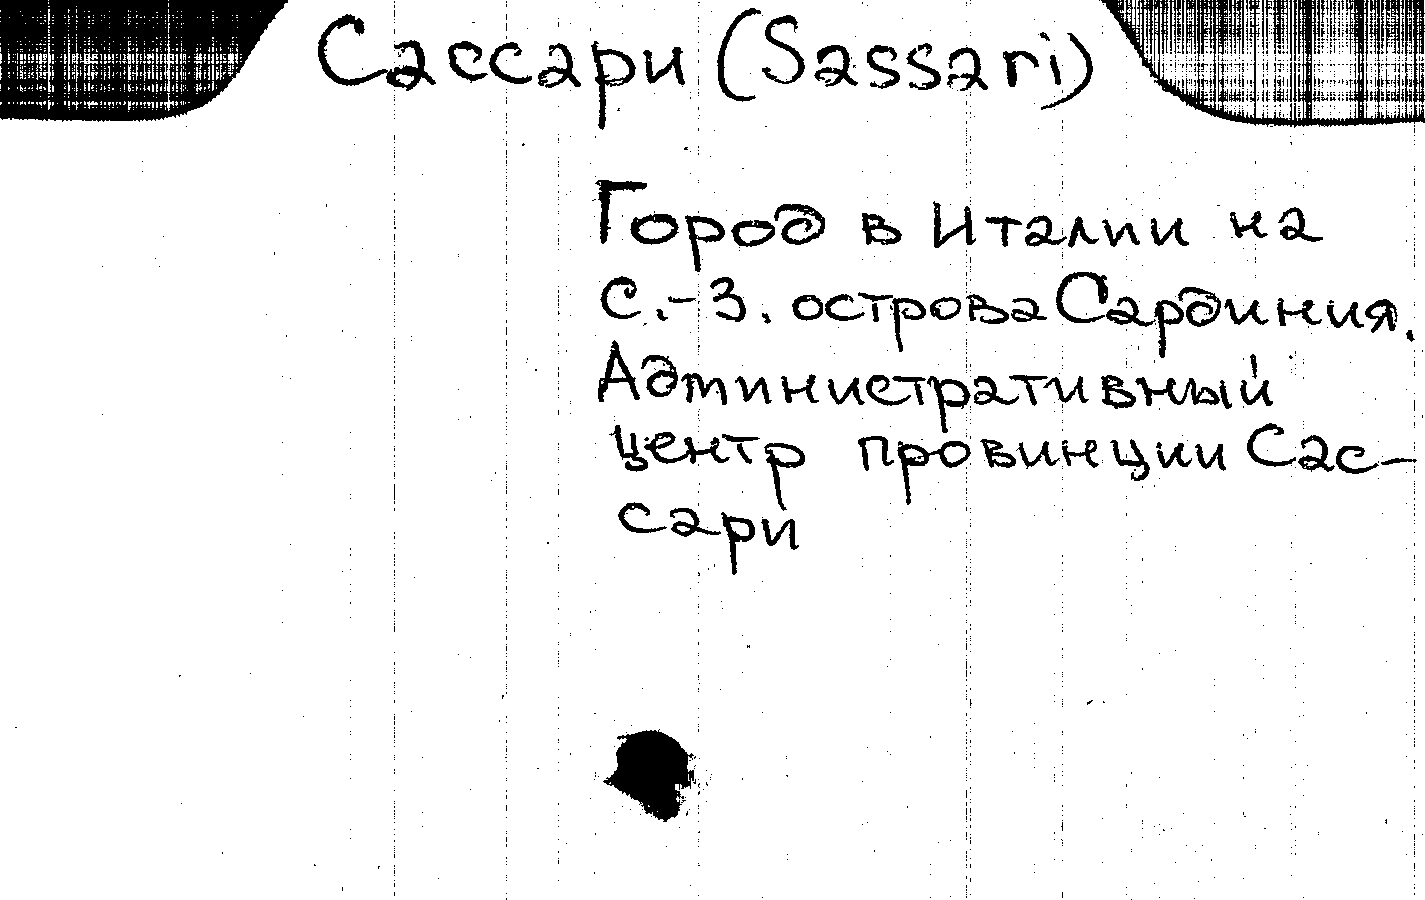 Сассари (Sassari)
Город в Италии на
С.-З. острова Сардиния.
Административный
центр провинции Сас-
сари